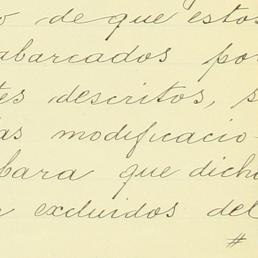 o de que estos
abarcados por
tes descritos, s
as modificacio-
para que dicho
excluidos del
#